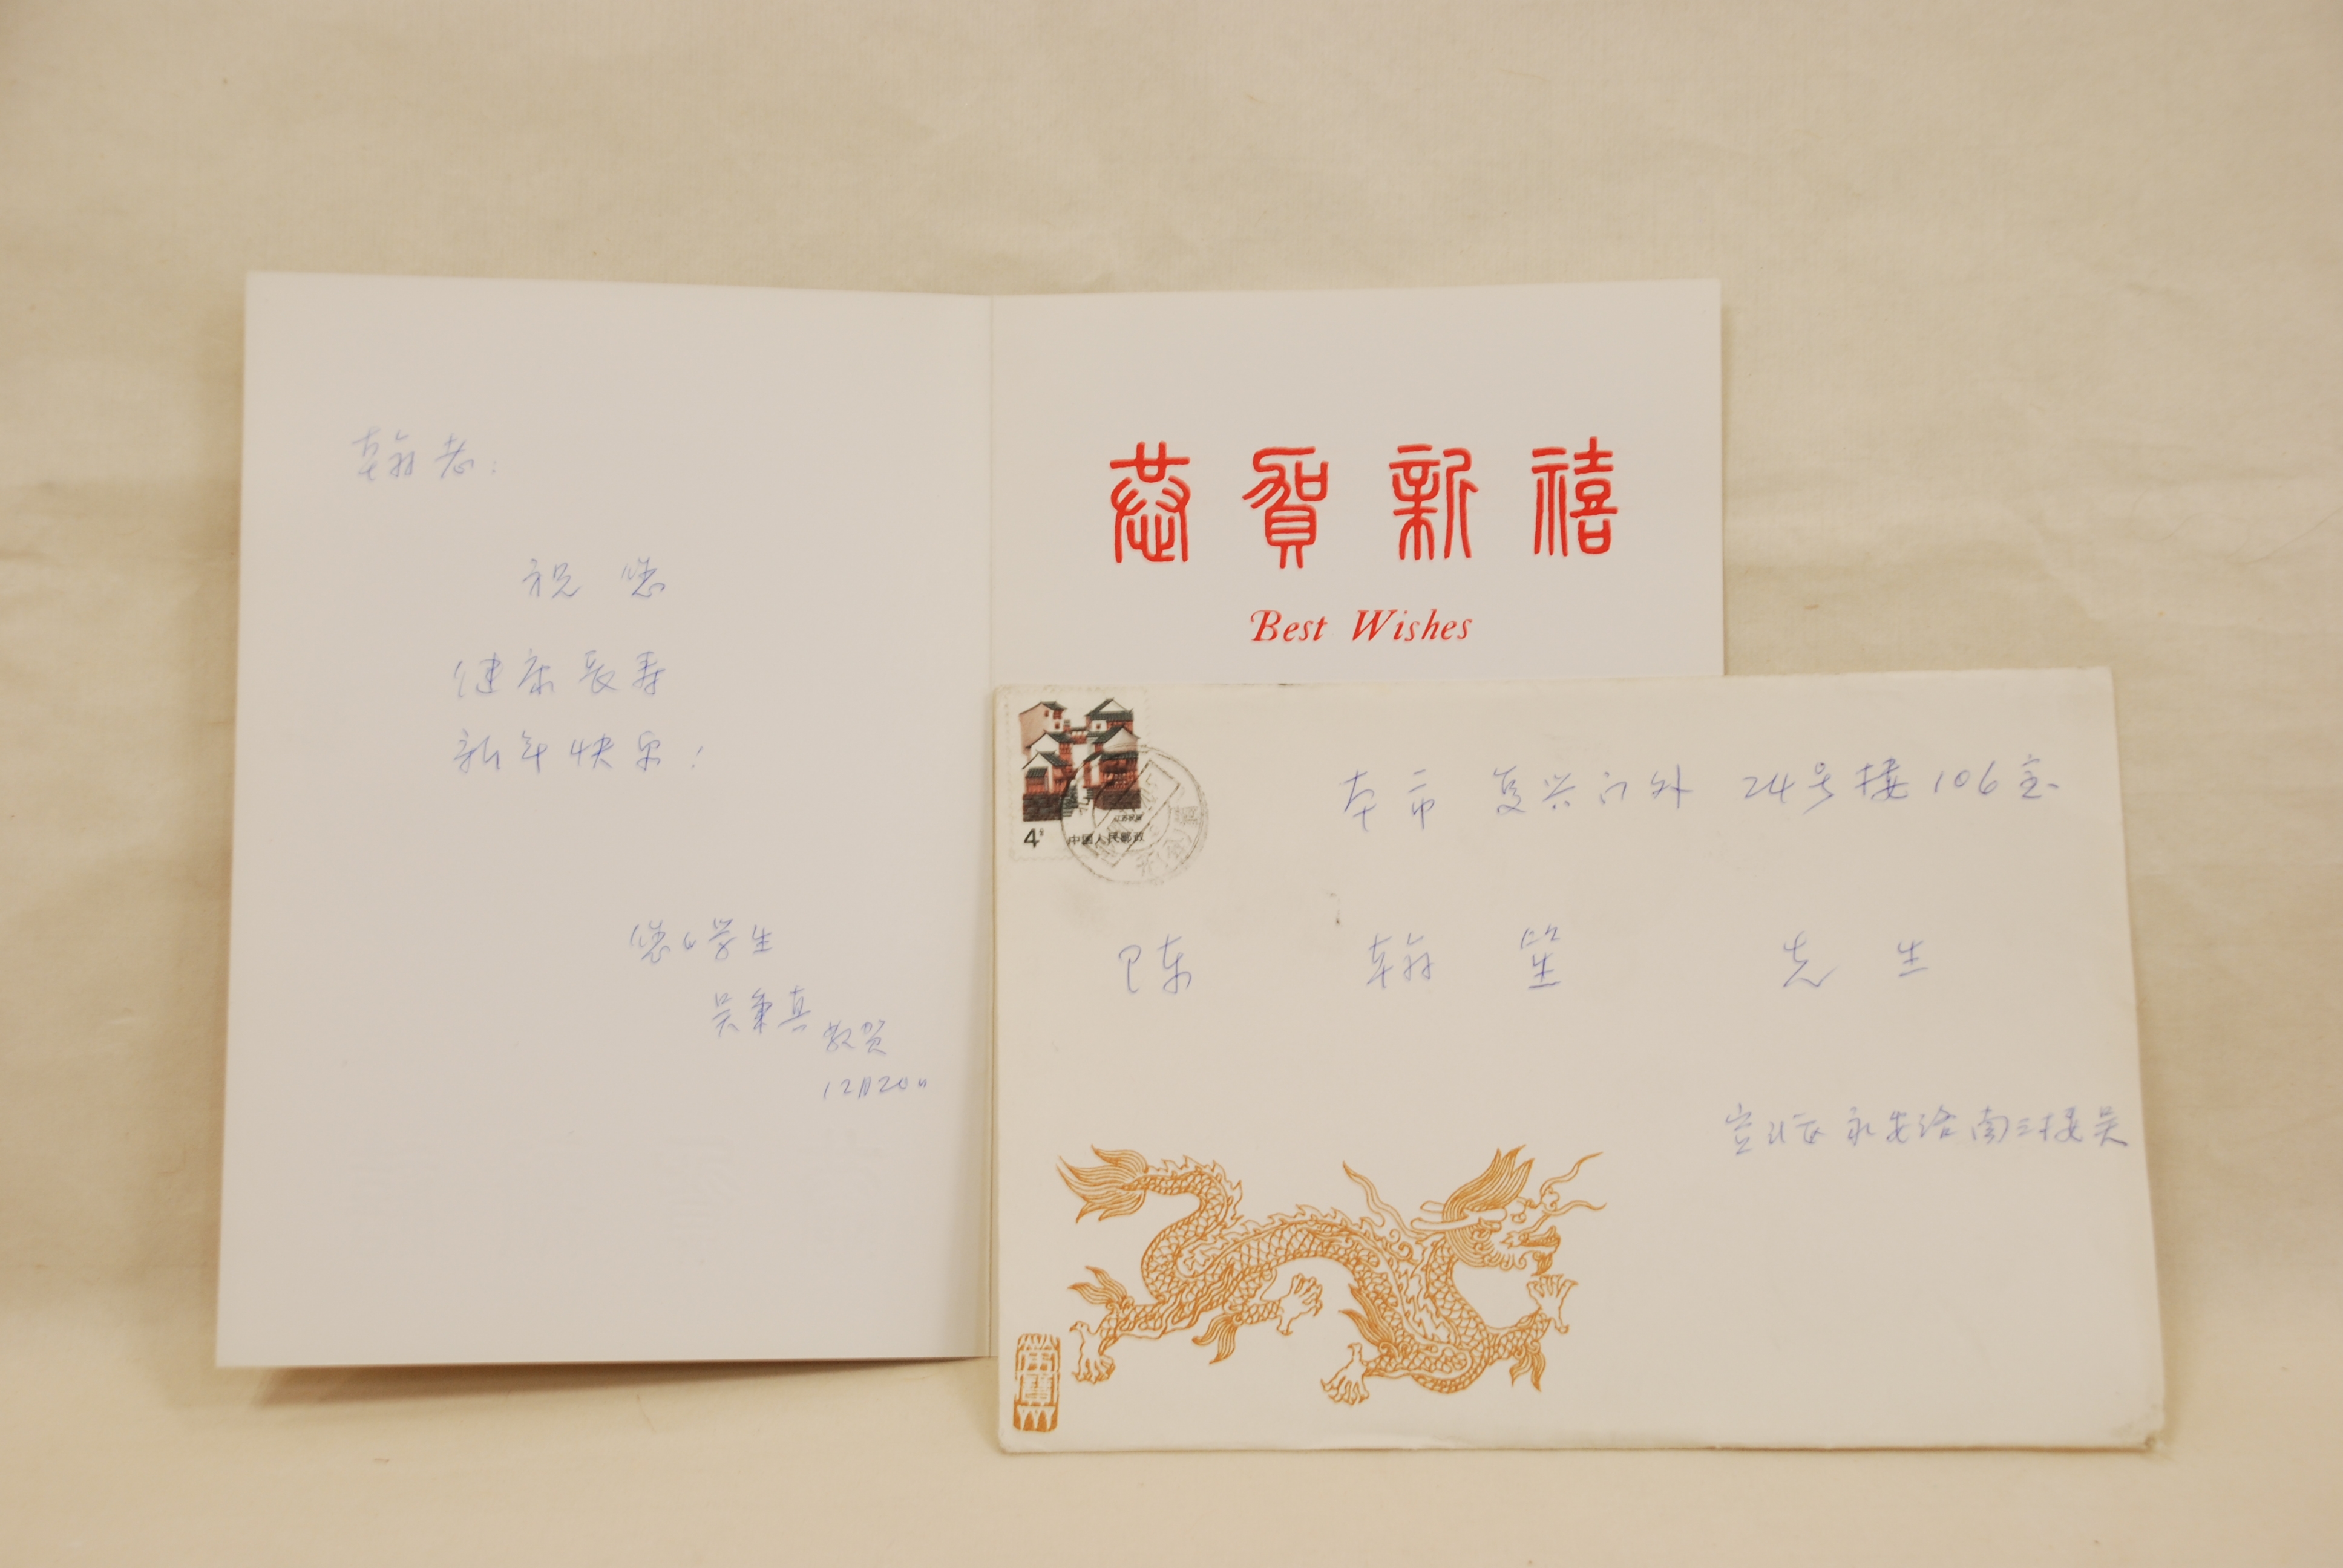 翰老：
祝您
健康长寿
新年快乐！
您的学生
吴秉真
敬贺
12月20日
恭贺新禧
Best Wishes
4分 中国人民邮政
江苏民居
本市 复兴门外 24号楼106室
陈 翰笙 先生
宣武区永安路南三楼吴